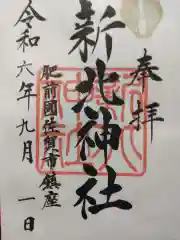 奉拝
新北神社
肥前國佐賀市鎮座
令和六年九月一日